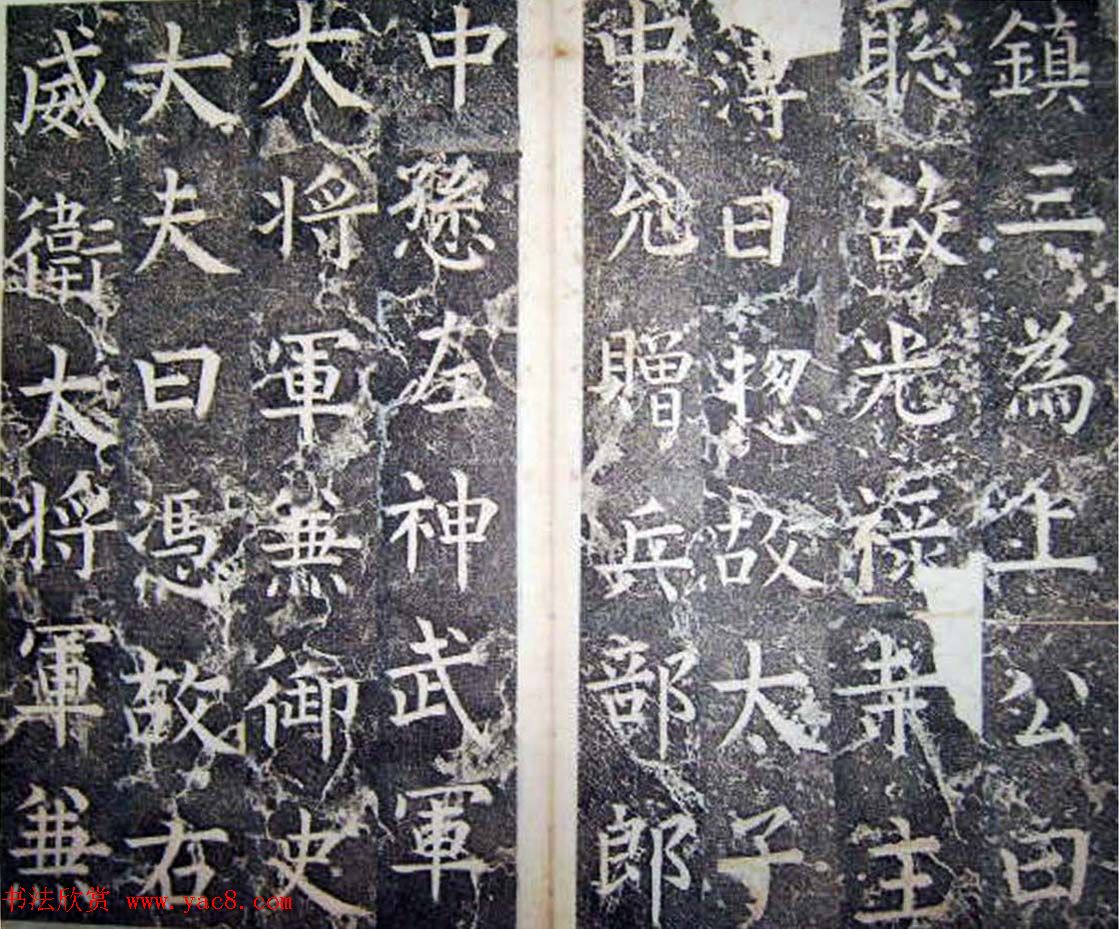 鎮三為上公曰
聡故光禄主
薄曰揔故太子
中允贈兵部郎
中愻左神武軍
大将軍兼御史
大夫曰憑故右
威衛大将軍兼
书法欣赏 www.yac8.com